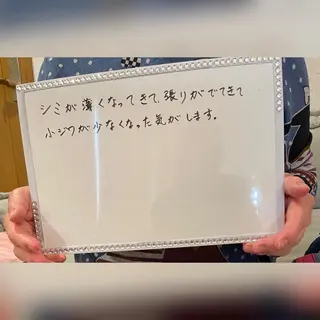 シミが薄くなってきて、張りがでてきて
小ジワが少なくなった気がします。